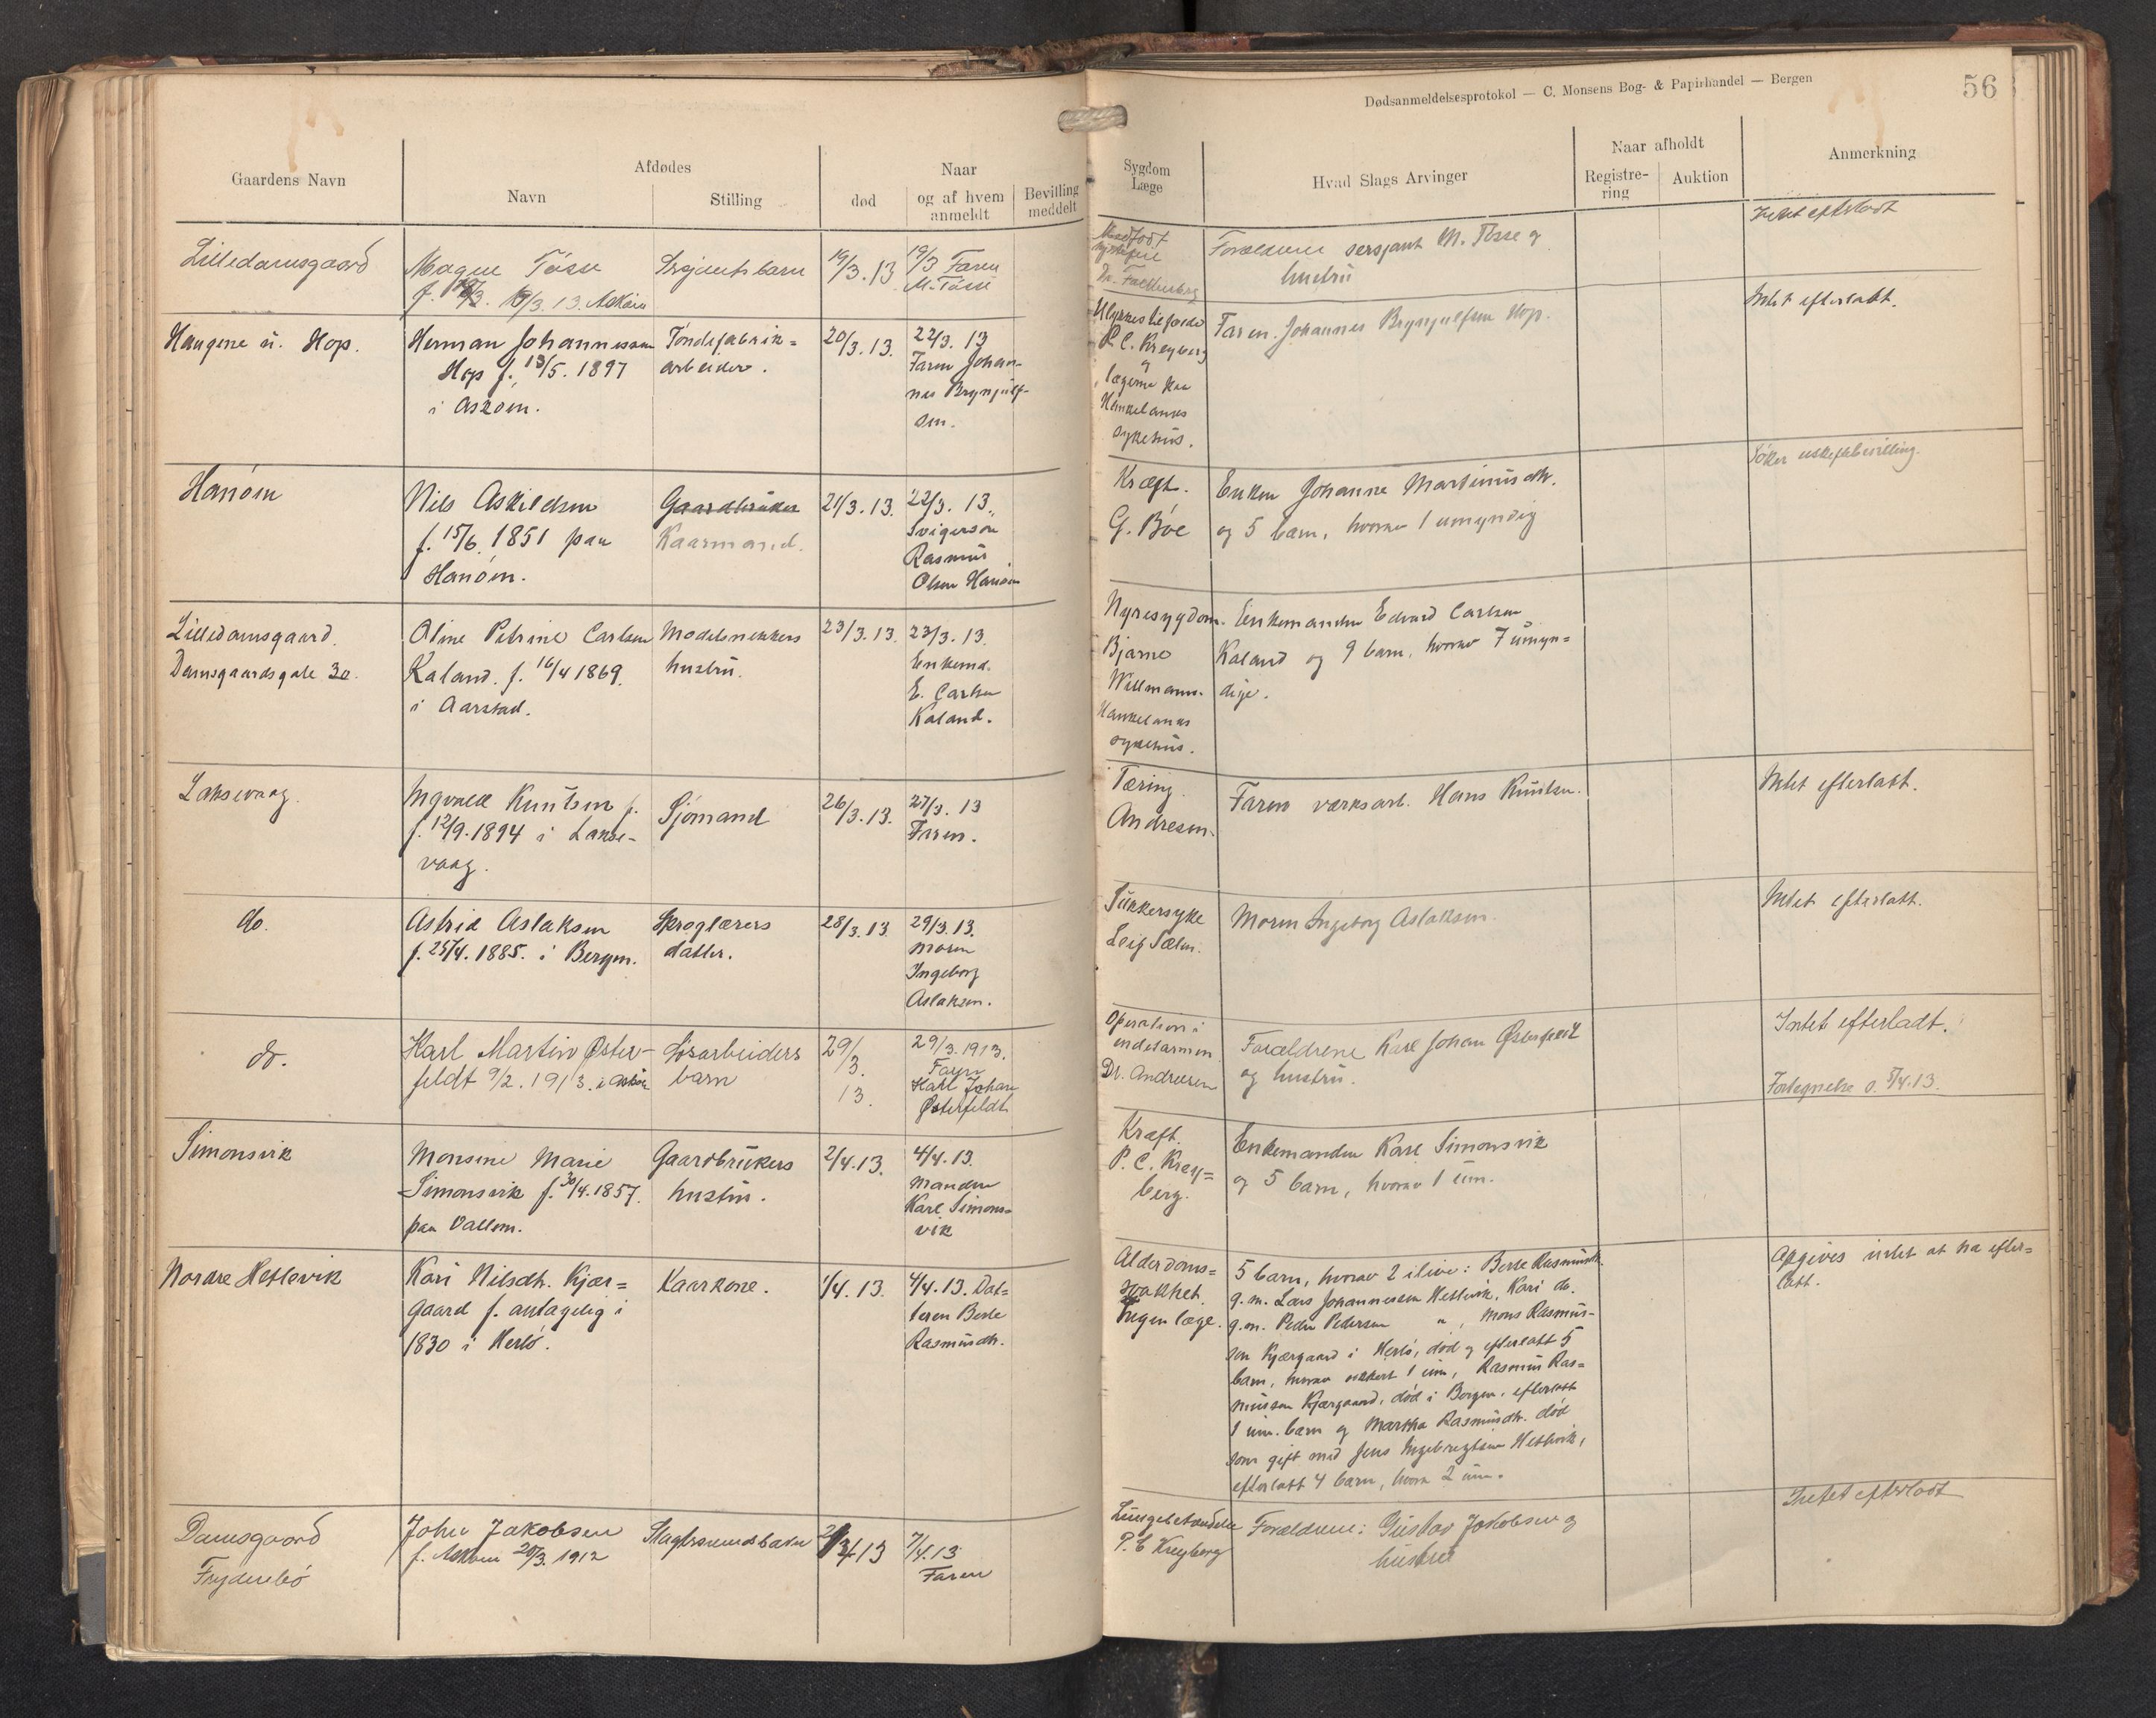 Dødsanmeldelsesprotokol — C. Monsens Bog- & Papirhandel — Bergen
56
Gaardens Navn
Afdødes
Navn
Stilling
Naar
død
og af hvem
anmeldt
Bevilling
meddelt
Sygdom
Læge
Hvad Slags Arvinger
Naar afholdt
Registre-
ring
Auktion
Anmerkning
Lilledamsgaard
Magne Tösse
f. 13. Askøen
Sergeantsbarn
19/3. 13
19/3 Faren
M. Tösse
Dr. Falkenberg
Forældrene sersjant M. Tösse og
hustru
Intet efterladt
Haugene u. Hop.
Herman Johannessen
Hop f. 13/5. 1897
i Askøen.
Töndefabrik=
arbeider.
20/3. 13.
22/3. 13
Faren Johan-
nes Brynjulf-
sen.
Ulykkestilfælde
P. C. Kreyberg
og
lægerne paa
Haukelands
sykehus.
Faren. Johannes Brynjulfsen Hop.
Intet efterlatt.
Hanöen
Nils Askildsen
f. 15/6. 1851 paa
Hanöen.
Gaardbruker
Kaarmand.
21/3. 13.
22/3. 13.
Svigersøn
Rasmus
Olsen Hanöen
Kræft.
G. Böe
Enken Johanne Martinusdtr.
og 5 barn, hvorav 1 umyndig
Söker uskiftebevilling.
Lilledamsgaard.
Damsgaardsgate 30.
Oline Petrine Carlsen
Kaland. f. 16/4 1869.
i Aarstad.
Modelsnekkers
hustru.
23/3. 13.
23/3. 13.
Enkemd.
E. Carlsen
Kaland.
Nyresygdom.
Bjarne
Willmann.
Haukelands
sykehus.
Enkemanden Edvard Carlsen
Kaland og 9 barn, hvorav 7 umyn=
dige.
Laksevaag.
Ingvald Knutsen f.
f. 12/9. 1894 i Lakse-
vaag.
Sjömand
26/3. 13.
27/3. 13
Faren.
Tæring.
Andresen.
Faren værksarb. Hans Knutsen.
Intet efterlatt.
do.
Astrid Aslaksen
f. 25/4. 1885. i Bergen.
Sproglærers
datter.
28/3. 13
29/3. 13.
Moren
Ingeborg
Aslaksen.
Sukkersyke
Leif Sælen.
Moren Ingeborg Aslaksen.
Intet efterlatt.
do.
Karl Martin Øster-
feldt 9/2. 1913. i Askøen
Løsarbeiders
barn
29/
3.
13.
29/3. 1913.
Faren
Karl Johan
Østerfeldt
Operation i
endetarmen
Dr. Andresen
Forældrene Karl Johan Østerfeldt
og hustru.
Intet efterladt.
Simonsvik
Monsine Marie
Simonsvik f. 30/4. 1857.
paa Vallem.
Gaardbrukers
hustru.
2/4. 13.
4/4. 13.
Manden
Karl Simons=
vik
Kræft.
P. C. Krey=
berg.
Enkemanden Karl Simonsvik
og 5 barn, hvorav 1 um.
Fortegnelse o. 5/4. 13.
Nordre Hetlevik
Kari Nilsdtr. Kjær=
gaard f. antagelig i
1830 i Herlö.
Kaarkone.
1/4. 13.
4/4. 13. Dat=
teren Berte
Rasmusdtr.
Alderdoms=
svakhet.
Ingen læge.
5 barn, hvorav 2 ilive: Berte Rasmusdtr.
g. m. Lars Johannessen Hetlevik, Kari do.
g. m. Peder Pedersen " , Mons Rasmus-
sen Kjærgaard i Herlö, död og efterlatt 5
barn, hvorav sikkert 1 um, Rasmus Ras=
mussen Kjærgaard, död i Bergen, efterlatt
1 um. barn og Martha Rasmusdtr. död
som gift med Jens Ingebrigtsen Hetlevik,
efterlatt 4 barn, hvorav 2 um.
Opgives intet at ha efter=
latt.
Damsgaard
Frydenbö
John Jakobsen
f. Askøen 20/3. 1912
13
7/4. 13
Faren
Lungebetændelse
P. C Kreyberg
Forældrene: Gustav Jakobsen og
hustru
Intet efterladt